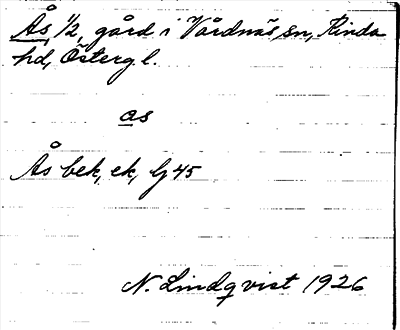 Ås, 1/2, gård i Vårdnäs sn, Kinda
hd, Östergl.
as
Ås bek, ek, G 45
N. Lindqvist 1926